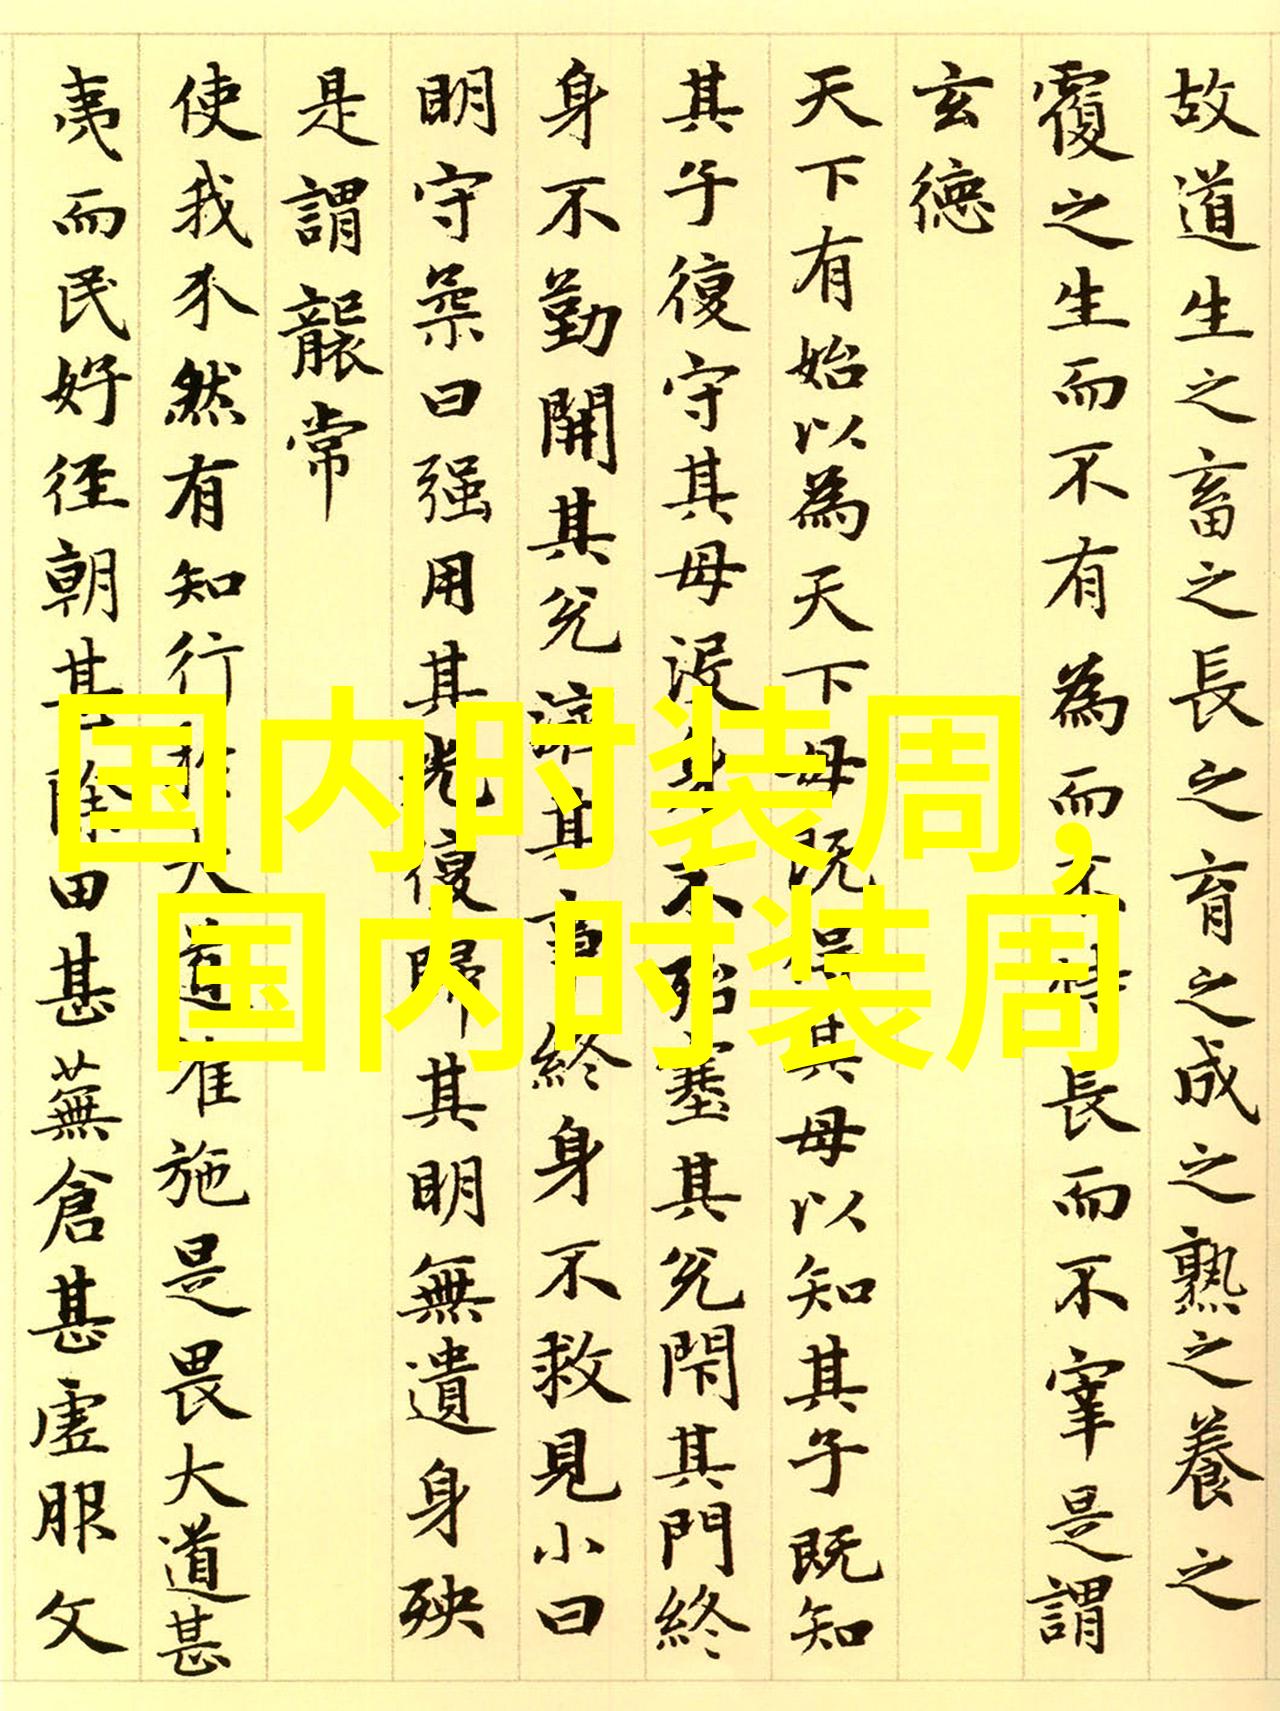 故道生之畜之長之育之成之熟之養之
覆之生而不有為而不恃長而不宰是謂
玄德
天下有始以為天下母既得其母以知其子既知
其子復守其母沒身不殆塞其兌閉其門終
身不勤開其兌濟其事終身不救見小曰
明守柔曰强用其光復歸其明無遺身殃
是謂襲常
使我介然有知行於大道唯施是畏大道甚
夷而民好徑朝甚除田甚蕪倉甚虛服文
国内时装周，
国内时装周